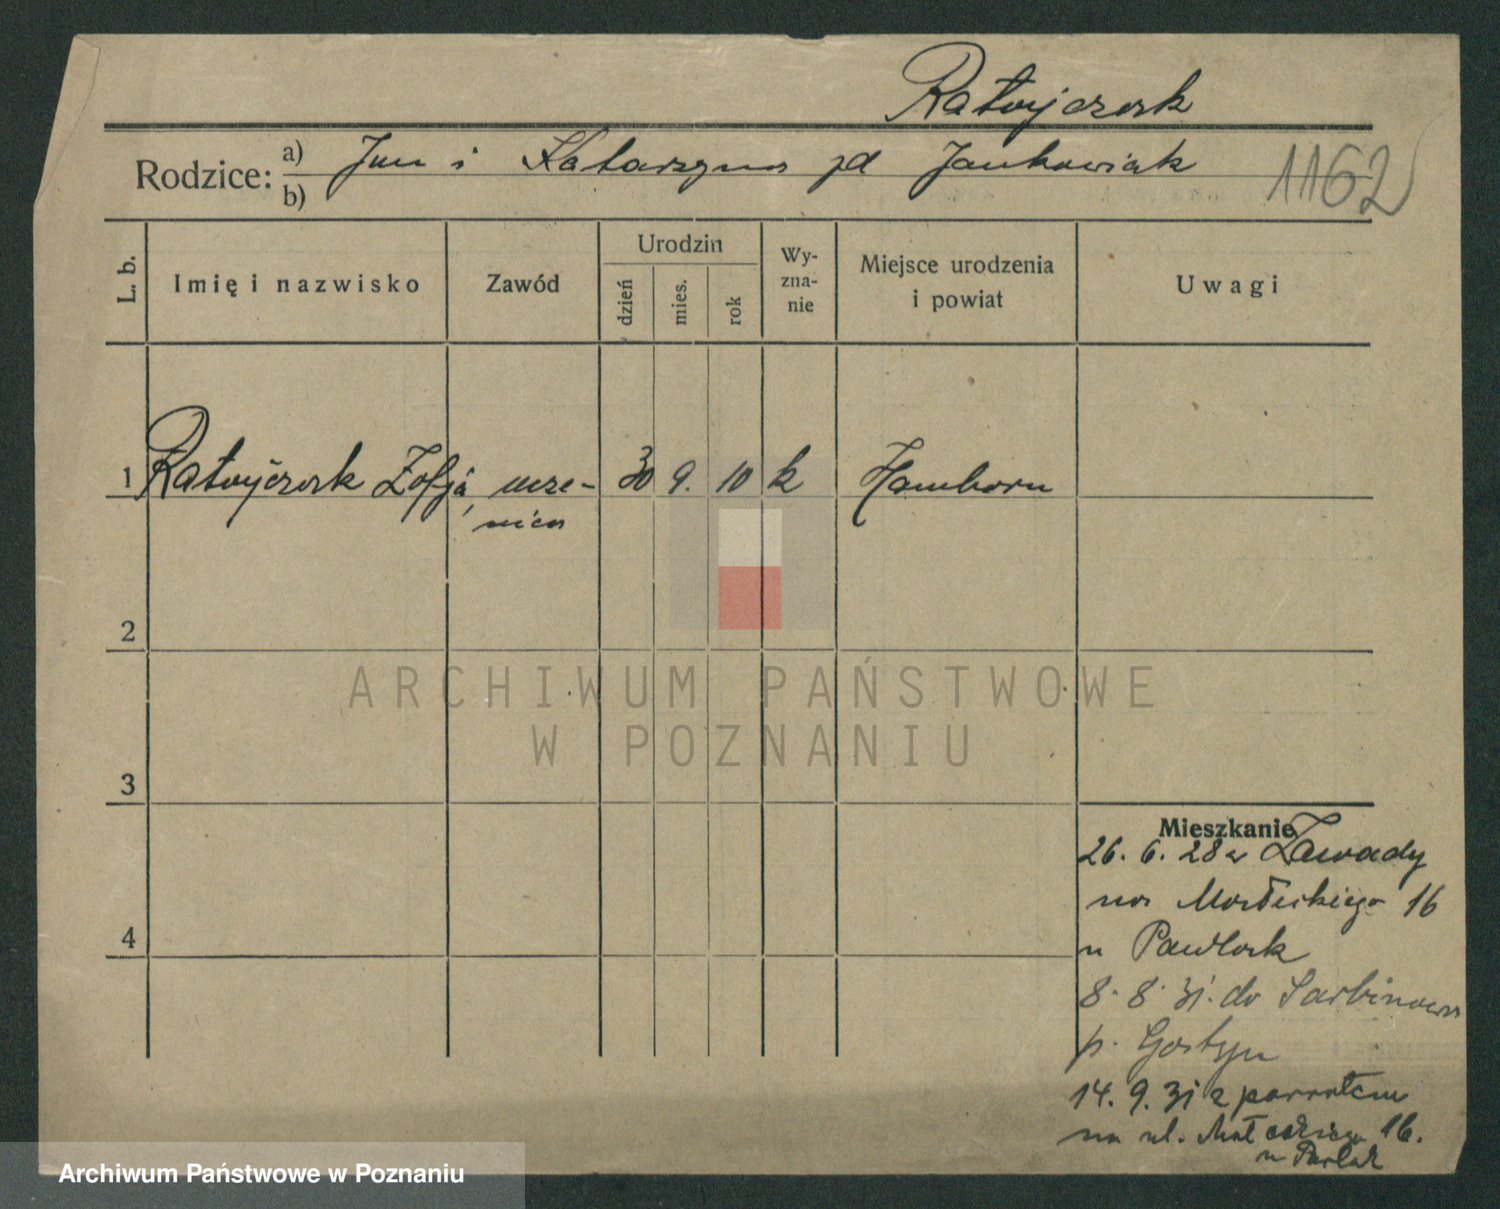 Ratajczak
Rodzice: a) Jan i Katarzyna zd Jankowiak
b)
1162
L. b.
Imię i nazwisko
Zawód
Urodzin
dzień
mies.
rok
Wy-
zna-
nie
Miejsce urodzenia
i powiat
Uwagi
1 Ratajczak Zofja ucze-
nica
30 9. 10 k Hamborn
2
3
4
Mieszkanie
26. 6. 28 z Zawady
na Małeckiego 16
u Pawlak
8. 8. 31. do Sarbinowa
p. Gostyn
14. 9. 31 z powrotem
na ul. Małeckiego 16.
u Pawlak
ARCHIWUM PAŃSTWOWE
W POZNANIU
Archiwum Państwowe w Poznaniu